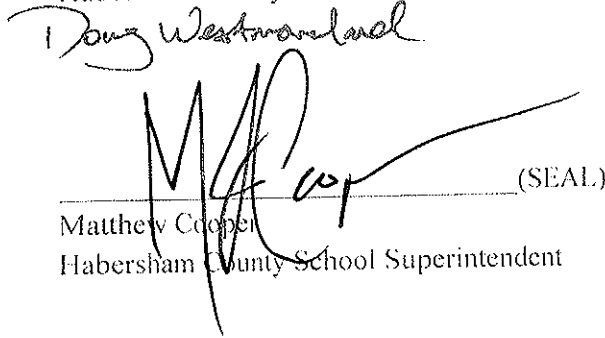 Doug Westmoreland
M Cooper
(SEAL)
Matthew Cooper
Habersham County School Superintendent